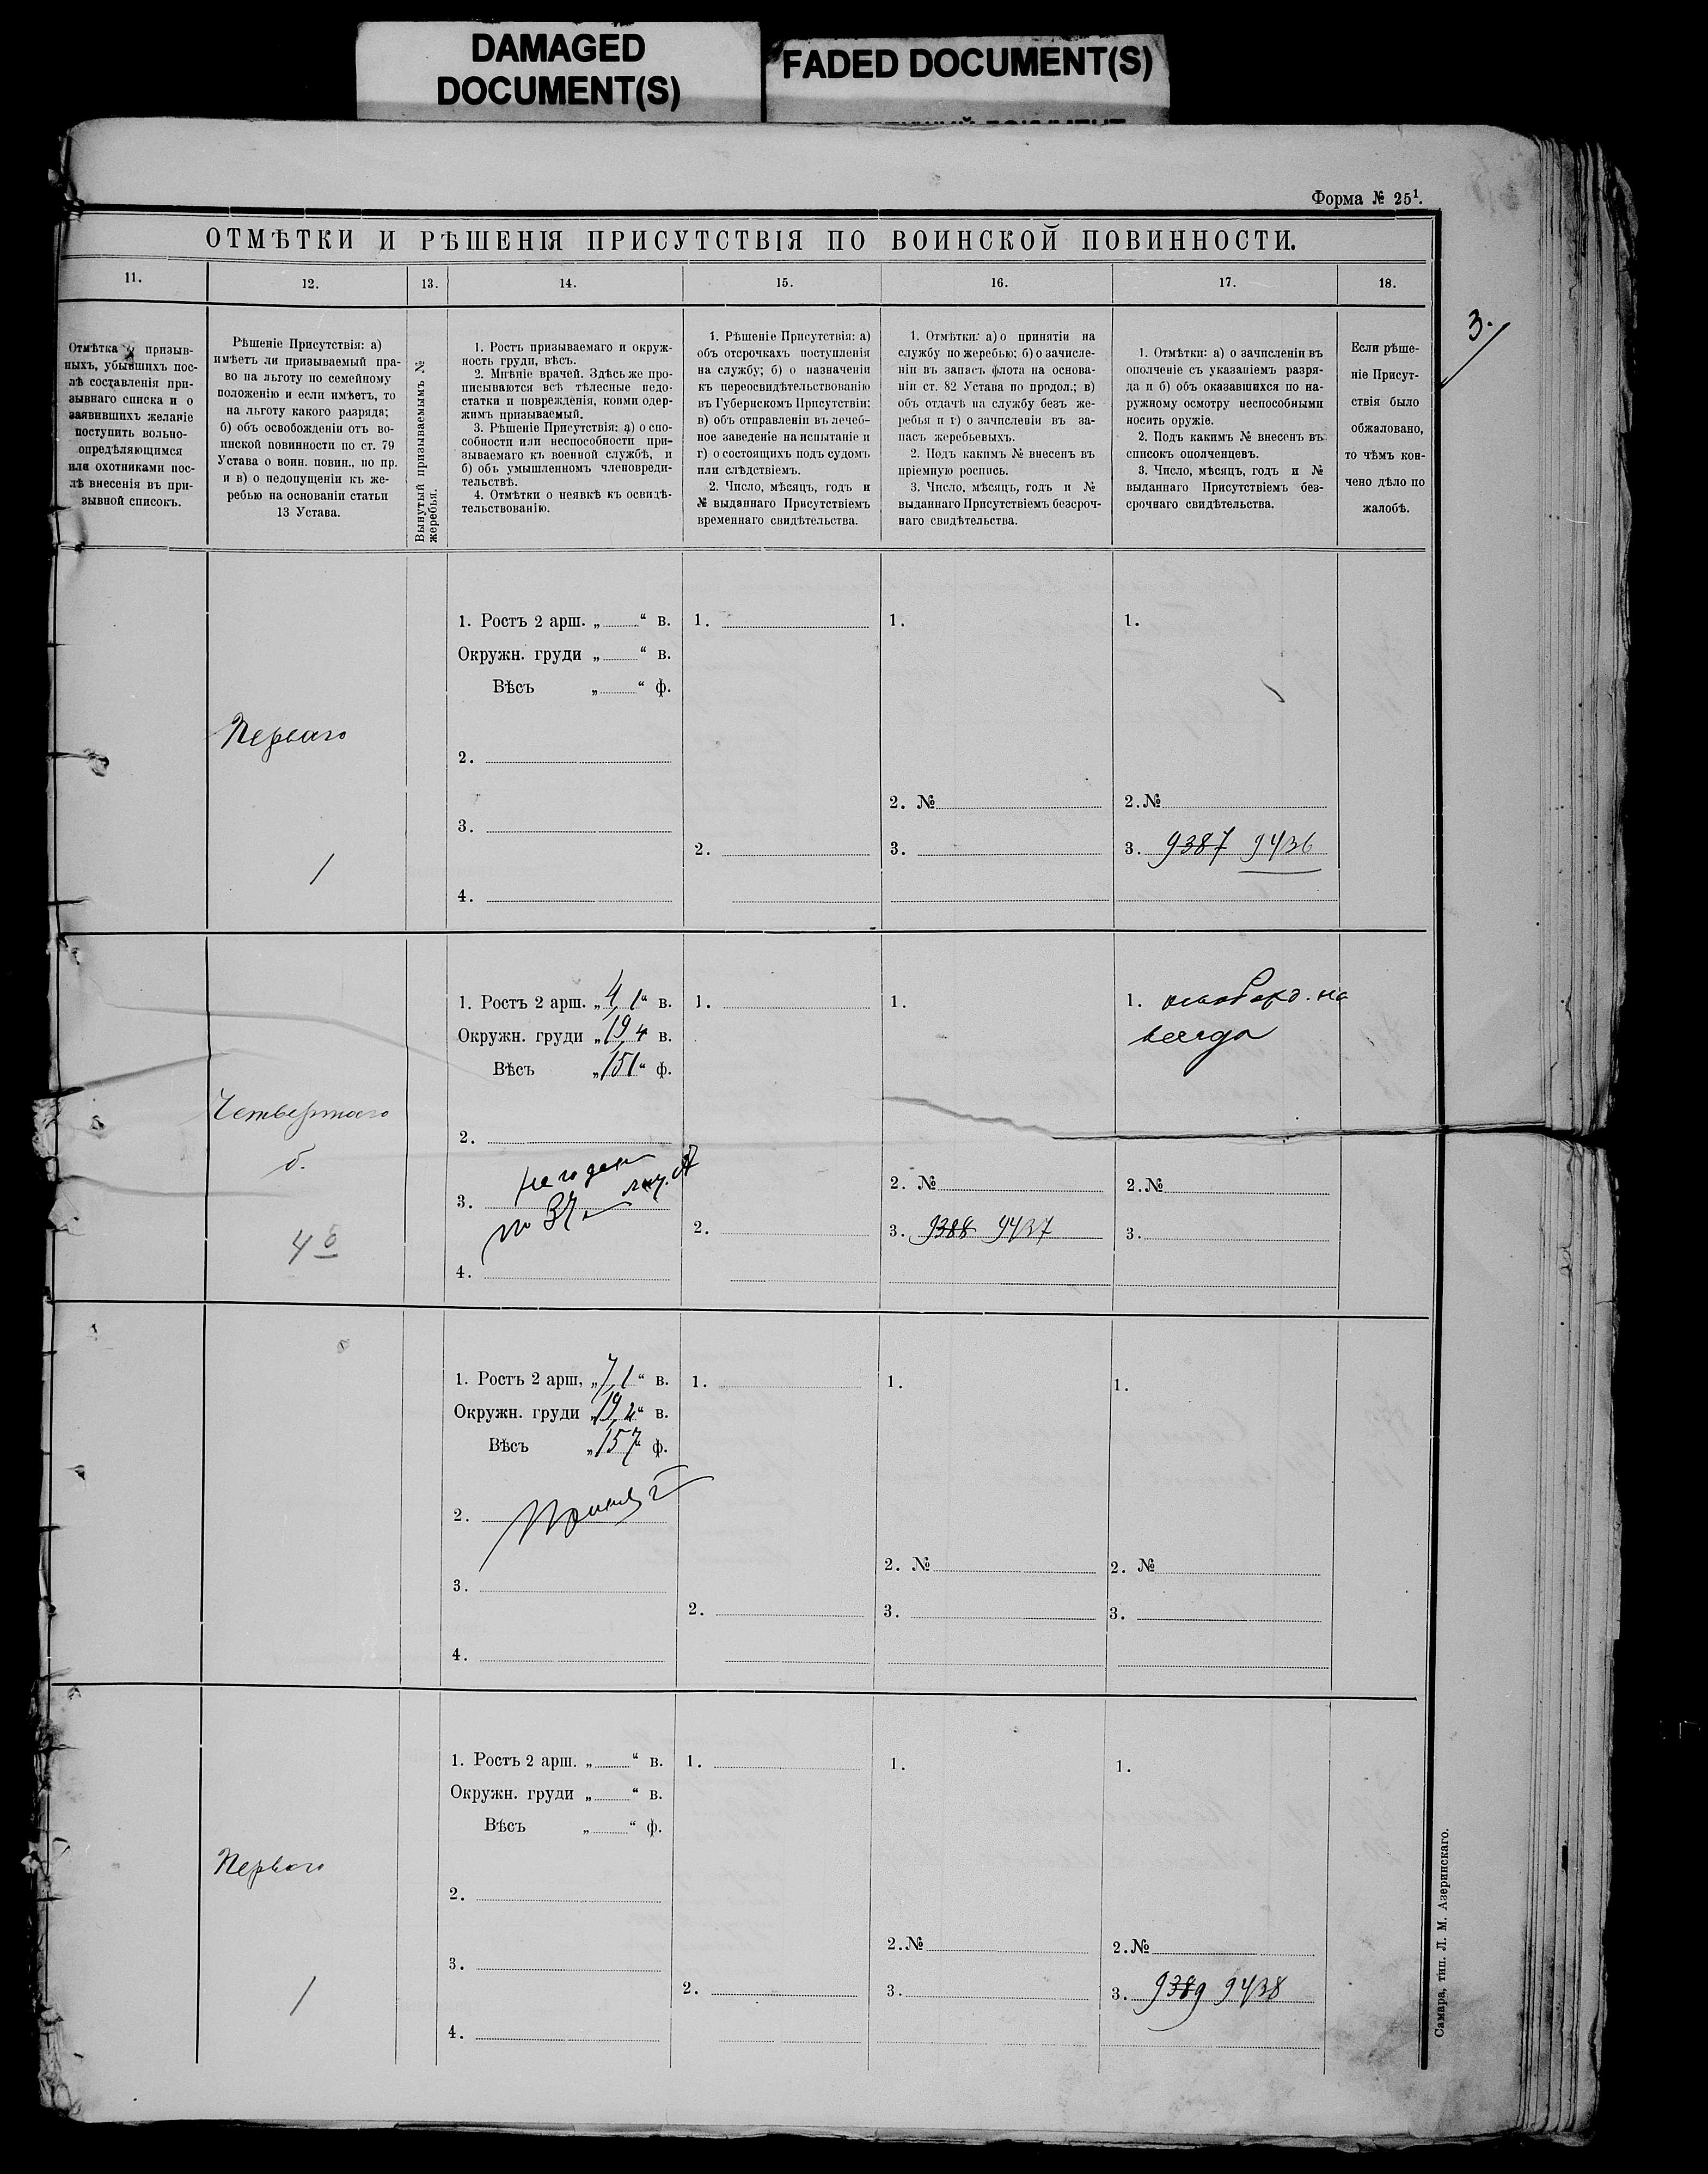 DAMAGED
DOCUMENT(S)
FADED DOCUMENT(S)
Форма № 25¹.
ОТМѢТКИ И РѢШЕНІЯ ПРИСУТСТВІЯ ПО ВОИНСКОЙ ПОВИННОСТИ.
3.
11.
12.
13.
14.
15.
16.
17.
18.
Отмѣтка о призыв-
ныхъ, убывшихъ пос-
лѣ составленія при-
зывнаго списка и о
заявившихъ желаніе
поступить вольно-
опредѣляющимся
или охотниками пос-
лѣ внесенія въ при-
зывной списокъ.
Рѣшеніе Присутствія: а)
имѣетъ ли призываемый пра-
во на льготу по семейному
положенію и если имѣетъ, то
на льготу какого разряда;
б) объ освобожденіи отъ во-
инской повинности по ст. 79
Устава о воин. повин., по пр.
и в) о недопущеніи къ же-
ребью на основаніи статьи
13 Устава.
Вынутый призываемымъ №
жеребья.
1. Ростъ призываемаго и окруж-
ность груди, вѣсъ.
2. Мнѣніе врачей. Здѣсь же про-
писываются всѣ тѣлесные недо-
статки и поврежденія, коими одер-
жимъ призываемый.
3. Рѣшеніе Присутствія: а) о спо-
собности или неспособности при-
зываемаго къ военной службѣ, и
б) объ умышленномъ членовреди-
тельствѣ.
4. Отмѣтки о неявкѣ къ освидѣ-
тельствованію.
1. Рѣшеніе Присутствія: а)
объ отсрочкахъ поступленія
на службу; б) о назначеніи
къ переосвидѣтельствованію
въ Губернскомъ Присутствіи;
в) объ отправленіи въ лечеб-
ное заведеніе на испытаніе и
г) о состоящихъ подъ судомъ
или слѣдствіемъ.
2. Число, мѣсяцъ, годъ и
№ выданнаго Присутствіемъ
временнаго свидѣтельства.
1. Отмѣтки: а) о принятіи на
службу по жеребью; б) о зачисле-
ніи въ запасъ флота на основа-
ніи ст. 82 Устава по продол.; в)
объ отдачѣ на службу безъ же-
ребья и г) о зачисленіи въ за-
пасъ жеребьевыхъ.
2. Подъ какимъ № внесенъ въ
пріемную роспись.
3. Число, мѣсяцъ, годъ и №
выданнаго Присутствіемъ безсроч-
наго свидѣтельства.
1. Отмѣтки: а) о зачисленіи въ
ополченіе съ указаніемъ разря-
да и б) объ оказавшихся по на-
ружному осмотру неспособными
носить оружіе.
2. Подъ какимъ № внесенъ въ
списокъ ополченцевъ.
3. Число, мѣсяцъ, годъ и №
выданнаго Присутствіемъ без-
срочнаго свидѣтельства.
Если рѣше-
ніе Присут-
ствія было
обжаловано,
то чѣмъ кон-
чено дѣло по
жалобѣ.
Перваго
1
1. Ростъ 2 арш. „ “ в.
Окружн. груди „ “ в.
Вѣсъ „ “ ф.
2.
3.
4.
1.
2.
1.
2. №
3.
1.
2. №
3. 9387 9436
Четвертаго
б.
4 б
1. Ростъ 2 арш. „4,1“ в.
Окружн. груди „19,4 в.
Вѣсъ „151“ ф.
2.
3. Негоденъ
по 37 лит. А
4.
1.
2.
1.
2. №
3. 9388 9437
1. освобожд. на
всегда
2. №
3.
1. Ростъ 2 арш. „7,1“ в.
Окружн. груди „19,2“ в.
Вѣсъ „157“ ф.
2. Принятъ
3.
4.
1.
2.
1.
2. №
3.
1.
2. №
3.
Перваго
1
1. Ростъ 2 арш. „ “ в.
Окружн. груди „ “ в.
Вѣсъ „ “ ф.
2.
3.
4.
1.
2.
1.
2. №
3.
1.
2. №
3. 9389 9438
Самара, тип. Л. М. Азеринскаго.